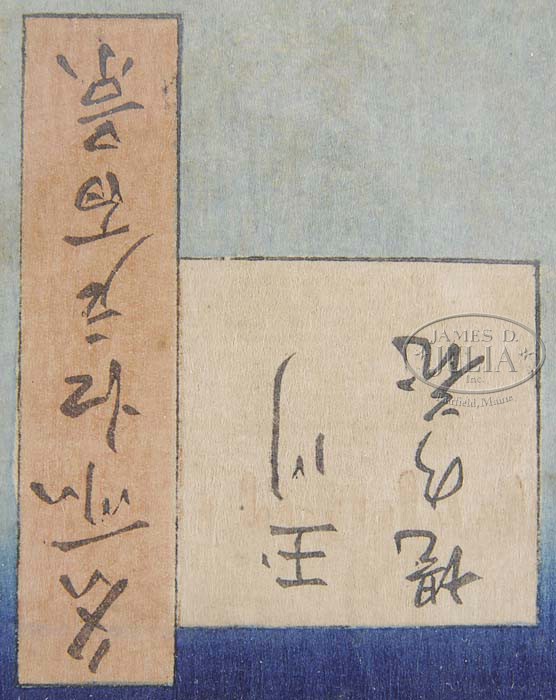 名所江戸百景
玉川
堤の花
JAMES D.
JULIA
Inc.
Fairfield, Maine